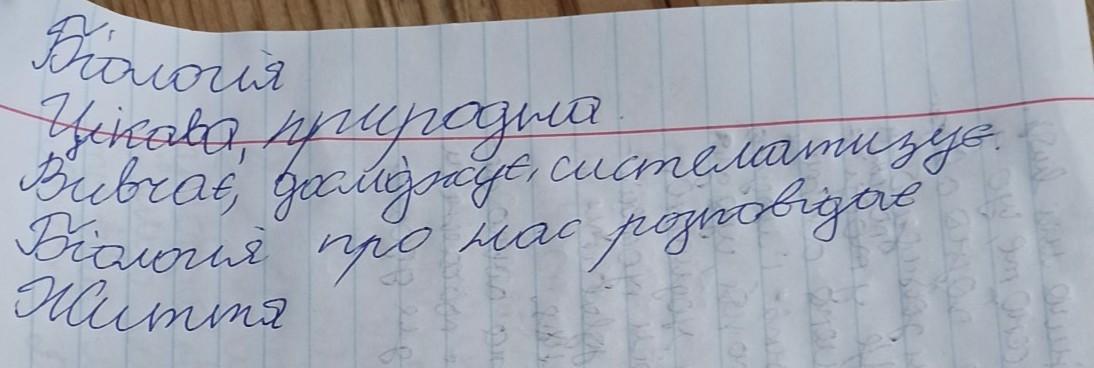 Біологія
Цікава, природна.
Вивчає, досліджує, систематизує.
Біологія про нас розповідає
Життя